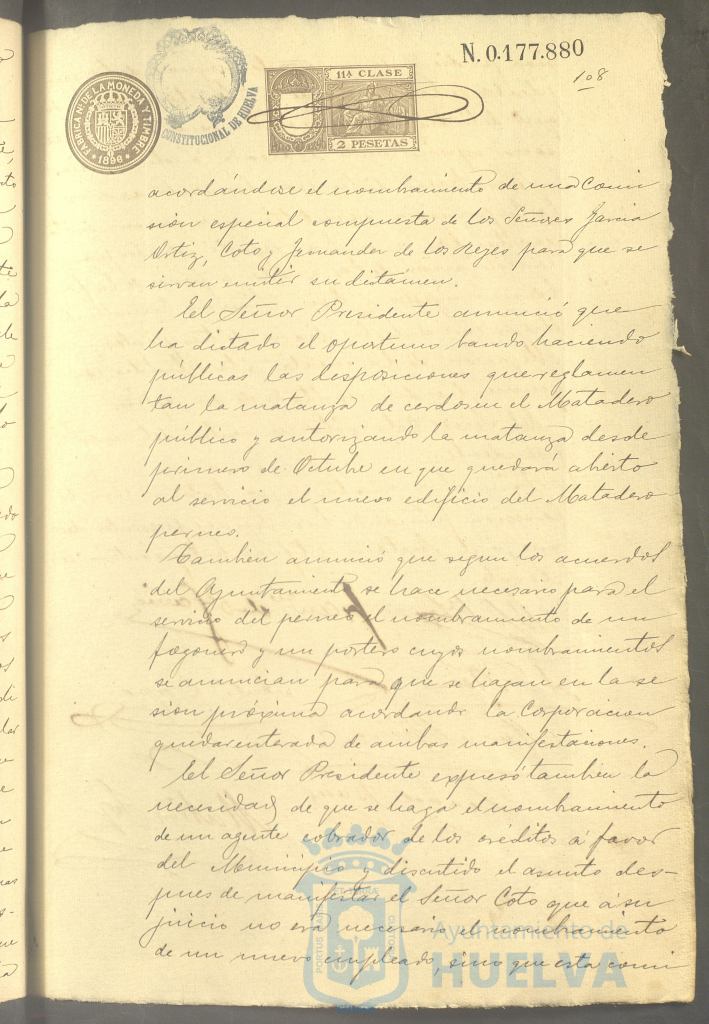 N. 0.177.880
108
FABRICA NL. DE LA MONEDA Y TIMBRE
1896
CONSTITUCIONAL DE HUELVA
11ª CLASE
2 PESETAS
acordándose el nombramiento de una Comi
sion especial compuesta de los Señores Garcia
Ortiz, Coto y Fernandez de los Reyes para que se
sirvan emitir su dictámen.
El Señor Presidente anunció que
ha dictado el oportuno bando haciendo
públicas las disposiciones que reglamen
tan la matanza de cerdos en el Matadero
público y autorizando la matanza desde
primero de Octubre en que quedará abierto
al servicio el nuevo edificio del Matadero
perneo.
Tambien anunció que segun los acuerdos
del Ayuntamiento se hace necesario para el
servicio del perneo el nombramiento de un
fogonero y un portero cuyos nombramientos
se anuncian para que se hagan en la se
sion próxima acordando la Corporacion
quedar enterada de ambas manifestaciones.
El Señor Presidente expresó tambien la
necesidad de que se haga el nombramiento
de un agente cobrador de los créditos a favor
del Municipio y discutido el asunto des-
pues de manifestar el Señor Coto que á su
juicio no era necesario el nombramiento
de un nuevo empleado, sino que esta comi
Ayuntamiento de
HUELVA